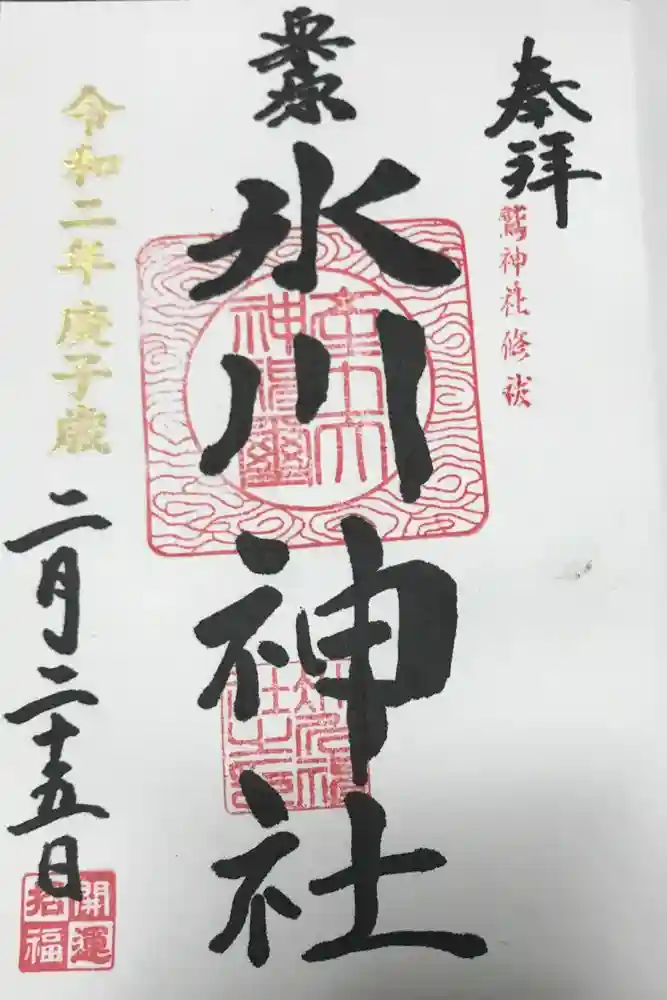 奉拝
鷲神社修祓
栗原
氷川神社
令和二年庚子歳
二月二十五日
開運
招福